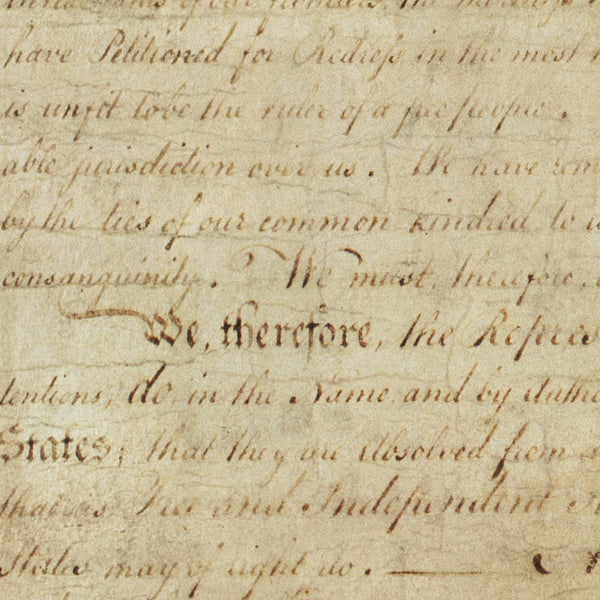 of our
have Petitioned for Redress in the most
is unfit to be the ruler of a free people.
able jurisdiction over us. We have
by the ties of our common kindred to
consanguinity. We must, therefore,
We, therefore, the Repres
tentions, do, in the Name, and by Autho
States; that they are Absolved from
that is Free and Independent
States may of right do.